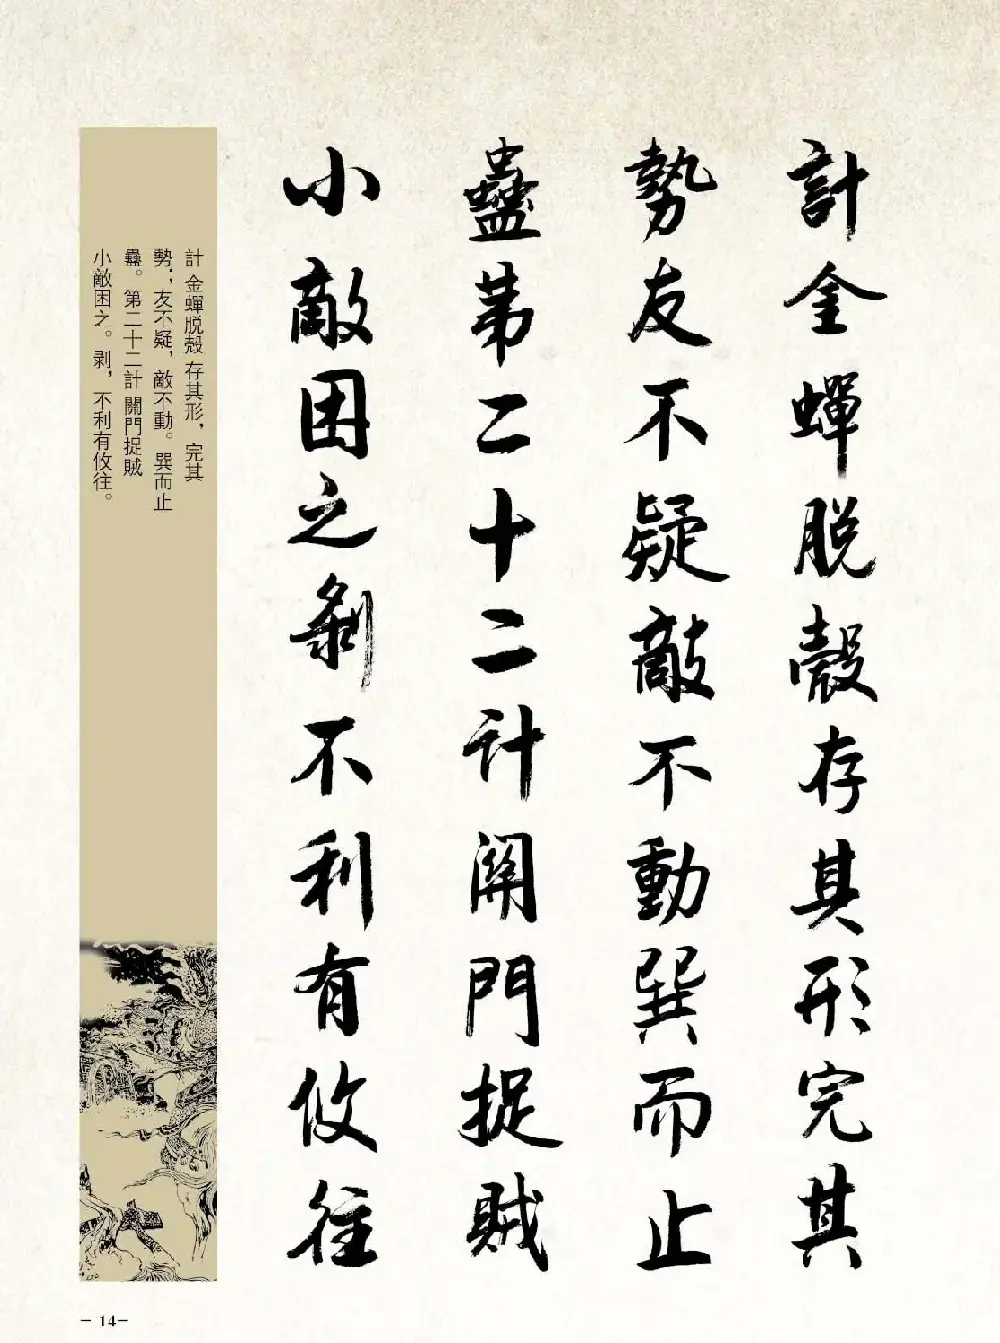 計金蟬脱殼存其形完其
勢友不疑敵不動巽而止
蠱第二十二计關門捉賊
小敵困之剝不利有攸往
計 金蟬脱殼 存其形，完其
勢；友不疑，敵不動。巽而止
蠱。第二十二計 關門捉賊
小敵困之。剥，不利有攸往。
- 14-